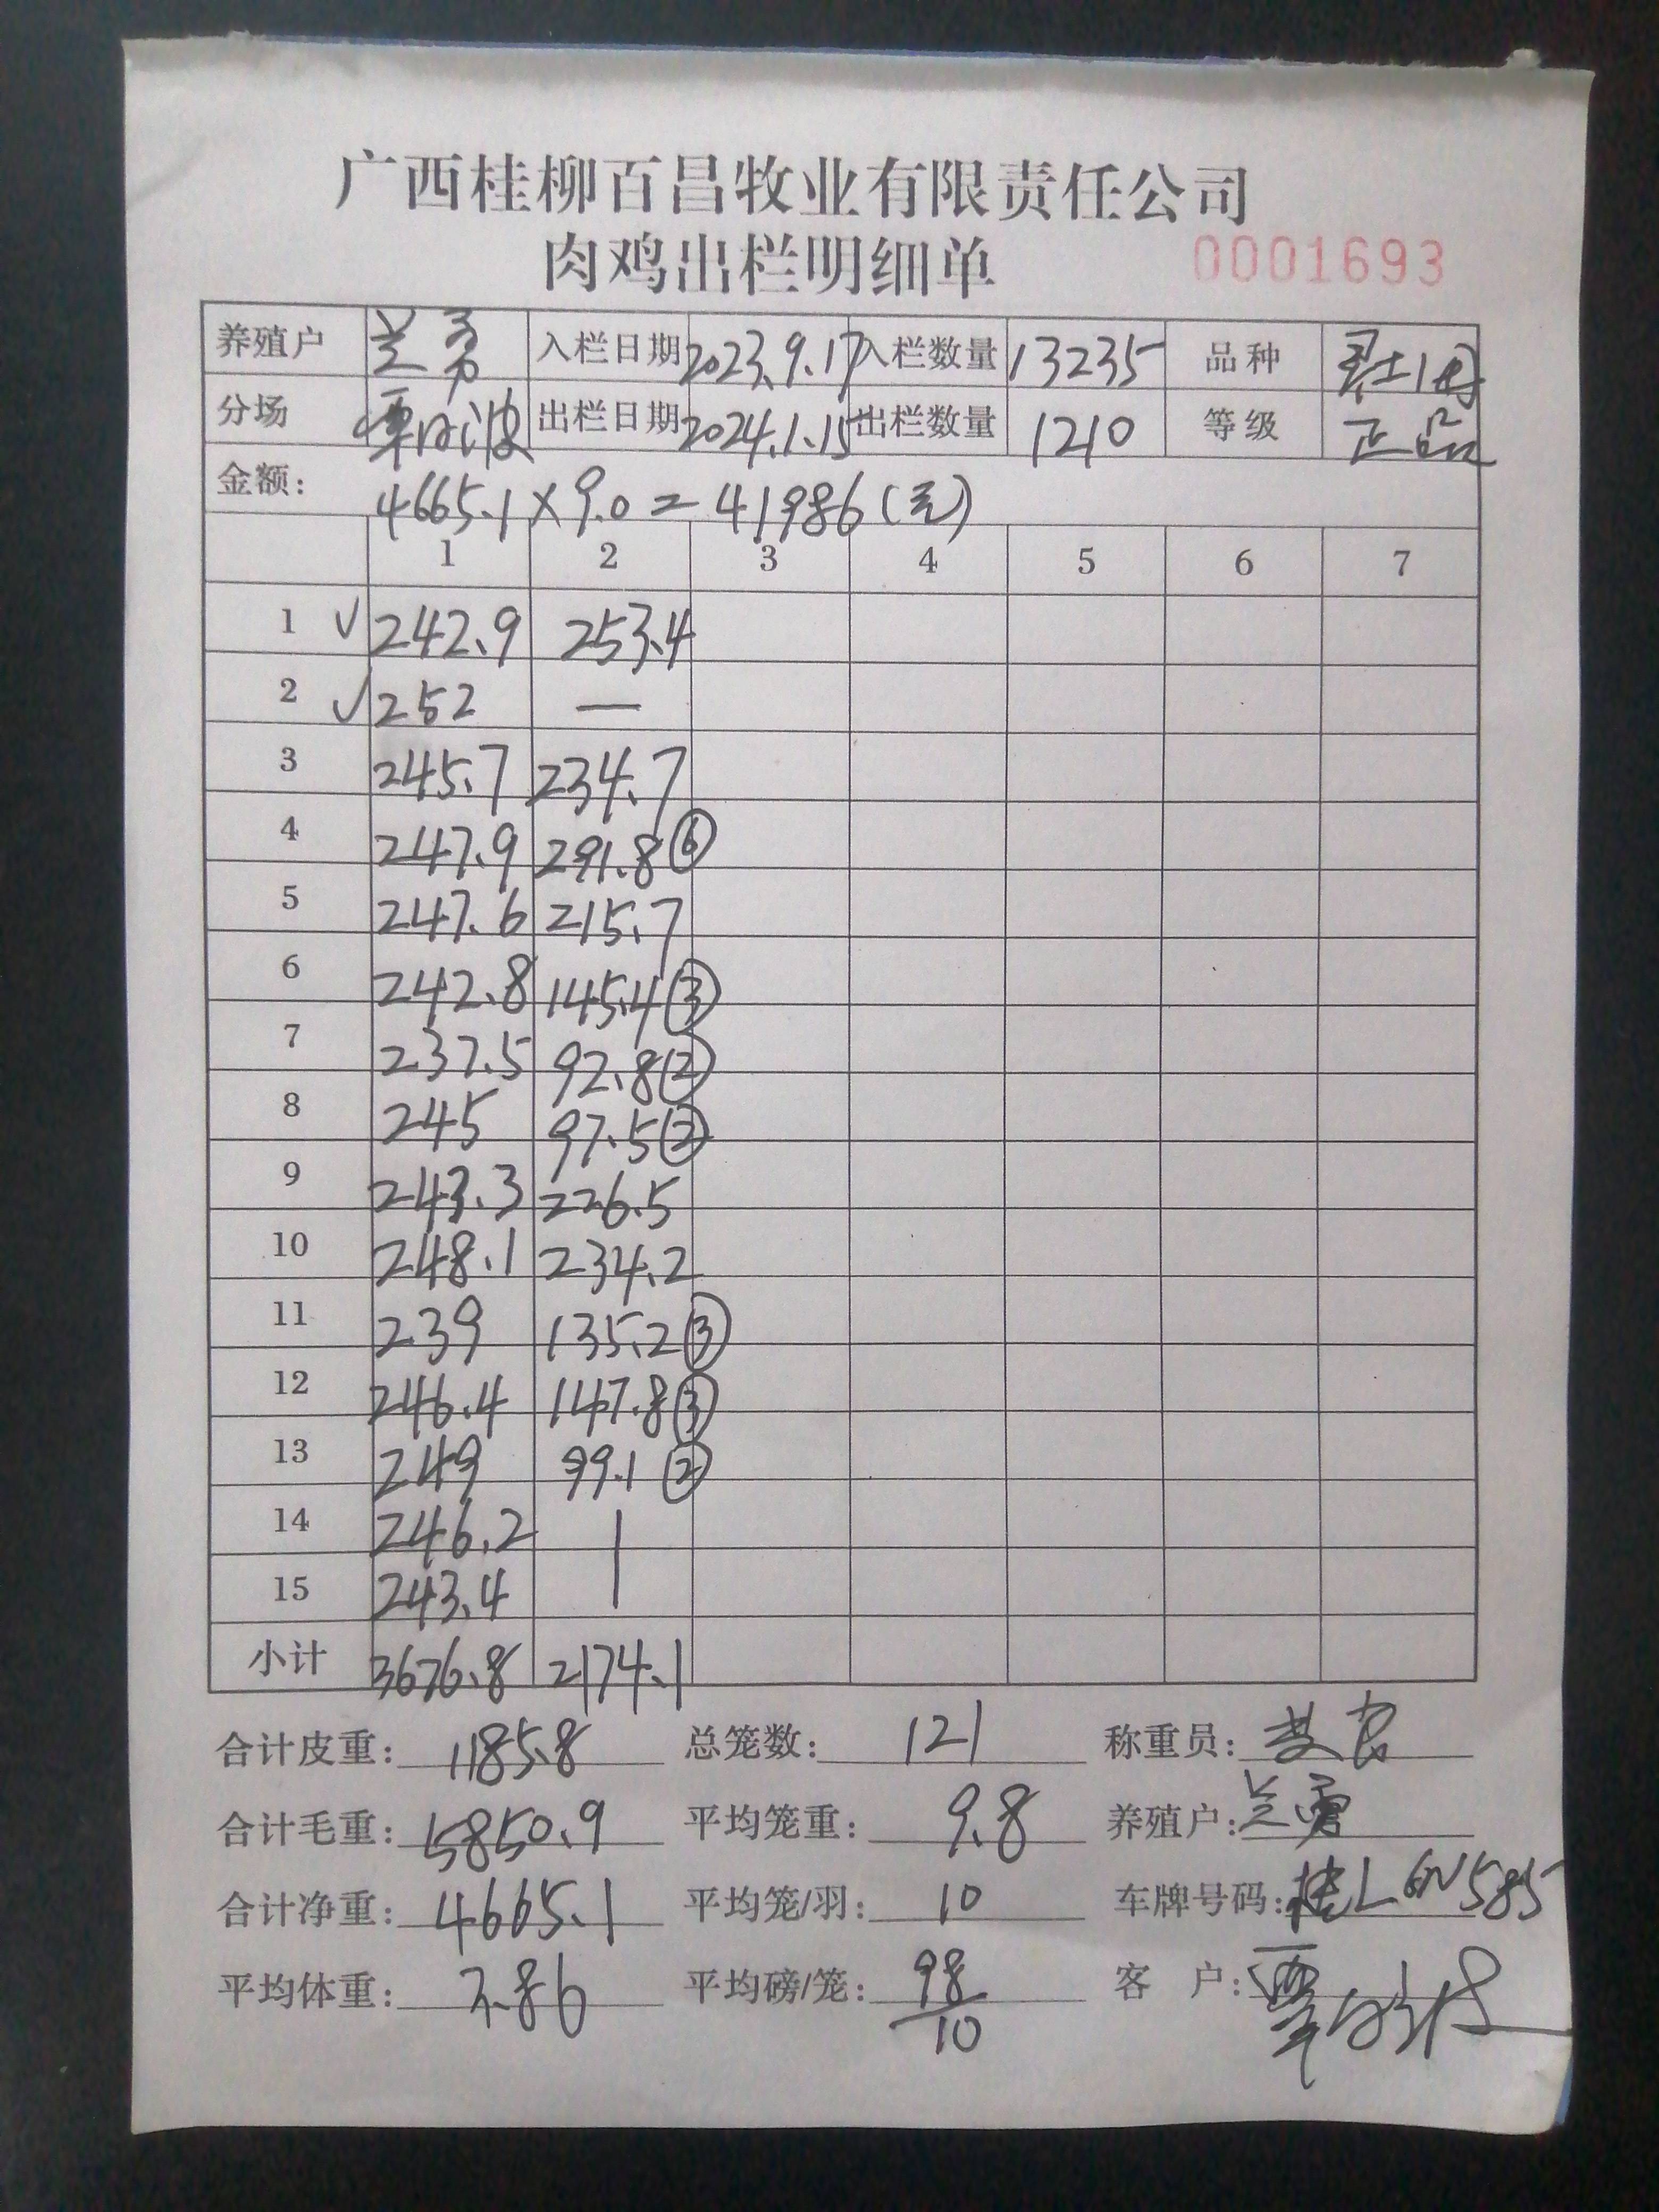 广西桂柳百昌牧业有限责任公司
肉鸡出栏明细单 0001693
养殖户 兰勇 入栏日期 2023.9.17 入栏数量 13235 品种
分场 覃时波 出栏日期 2024.1.15 出栏数量 1210 等级 正品
金额: 4665.1×9.0=41986(元)
1 2 3 4 5 6 7
1 √ 242.9 253.4
2 √ 252 —
3 245.7 234.7
4 247.9 291.8⑥
5 247.6 215.7
6 242.8 145.4③
7 237.5 92.8②
8 245 97.5②
9 243.3 226.5
10 248.1 234.2
11 239 135.2③
12 246.4 147.8③
13 249 99.1②
14 246.2
15 243.4
小计 3676.8 2174.1
合计皮重: 1185.8 总笼数: 121 称重员:
合计毛重: 5850.9 平均笼重: 9.8 养殖户: 兰勇
合计净重: 4665.1 平均笼/羽: 10 车牌号码: 桂L6N585
平均体重: 3.86 平均磅/笼: 98/10 客户: